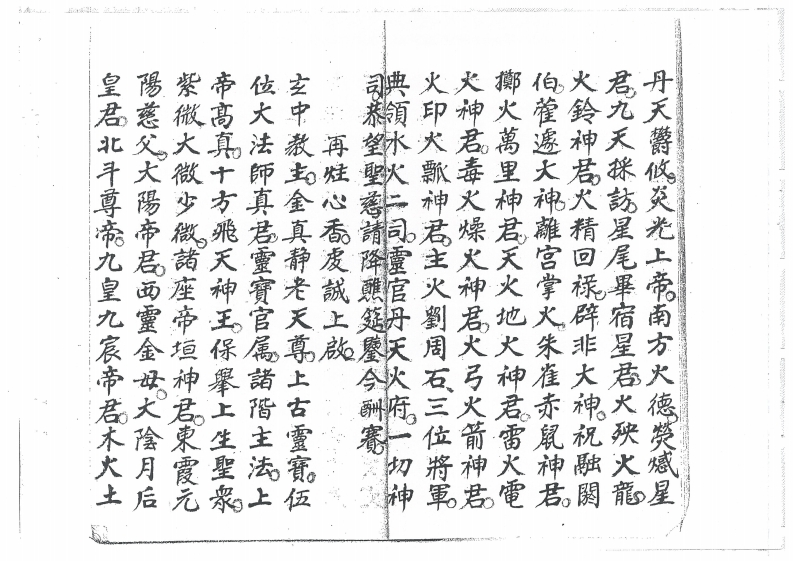 丹天欝攸。炎光上帝。南方火德熒惑星
君。九天採訪。星尾畢宿星君。火殃火龍
火鈴神君。火精回祿。辟非大神。祝融閼
伯。蓷遽大神。離宮掌火。朱雀赤鼠神君。
擲火萬里神君。天火地火神君。雷火電
火神君。毒火燥火神君。火弓火箭神君。
火印火瓢神君。主火劉周石、三位將軍。
典領水火二司。靈官丹天火府。一切神
司。恭望聖慈。請降醮筵。鑒今酬賽。
再炷心香。虔誠上啟。
玄中教主。金真静老天尊。上古靈寶。伍
位大法師真君。靈寶官属。諸階主法。上
帝高真。十方飛天神王。保舉上生聖衆。
紫微大微少微。諸座帝垣神君。東霞元
陽慈父。大陽帝君。西靈金母。大陰月后
皇君。北斗尊帝。九皇九宸帝君。木火土